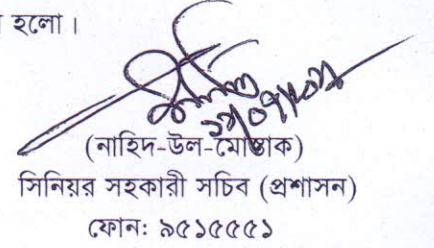 হলো।
(নাহিদ-উল-মোস্তাক)
সিনিয়র সহকারী সচিব (প্রশাসন)
ফোন: ৯৫১৫৫৫১